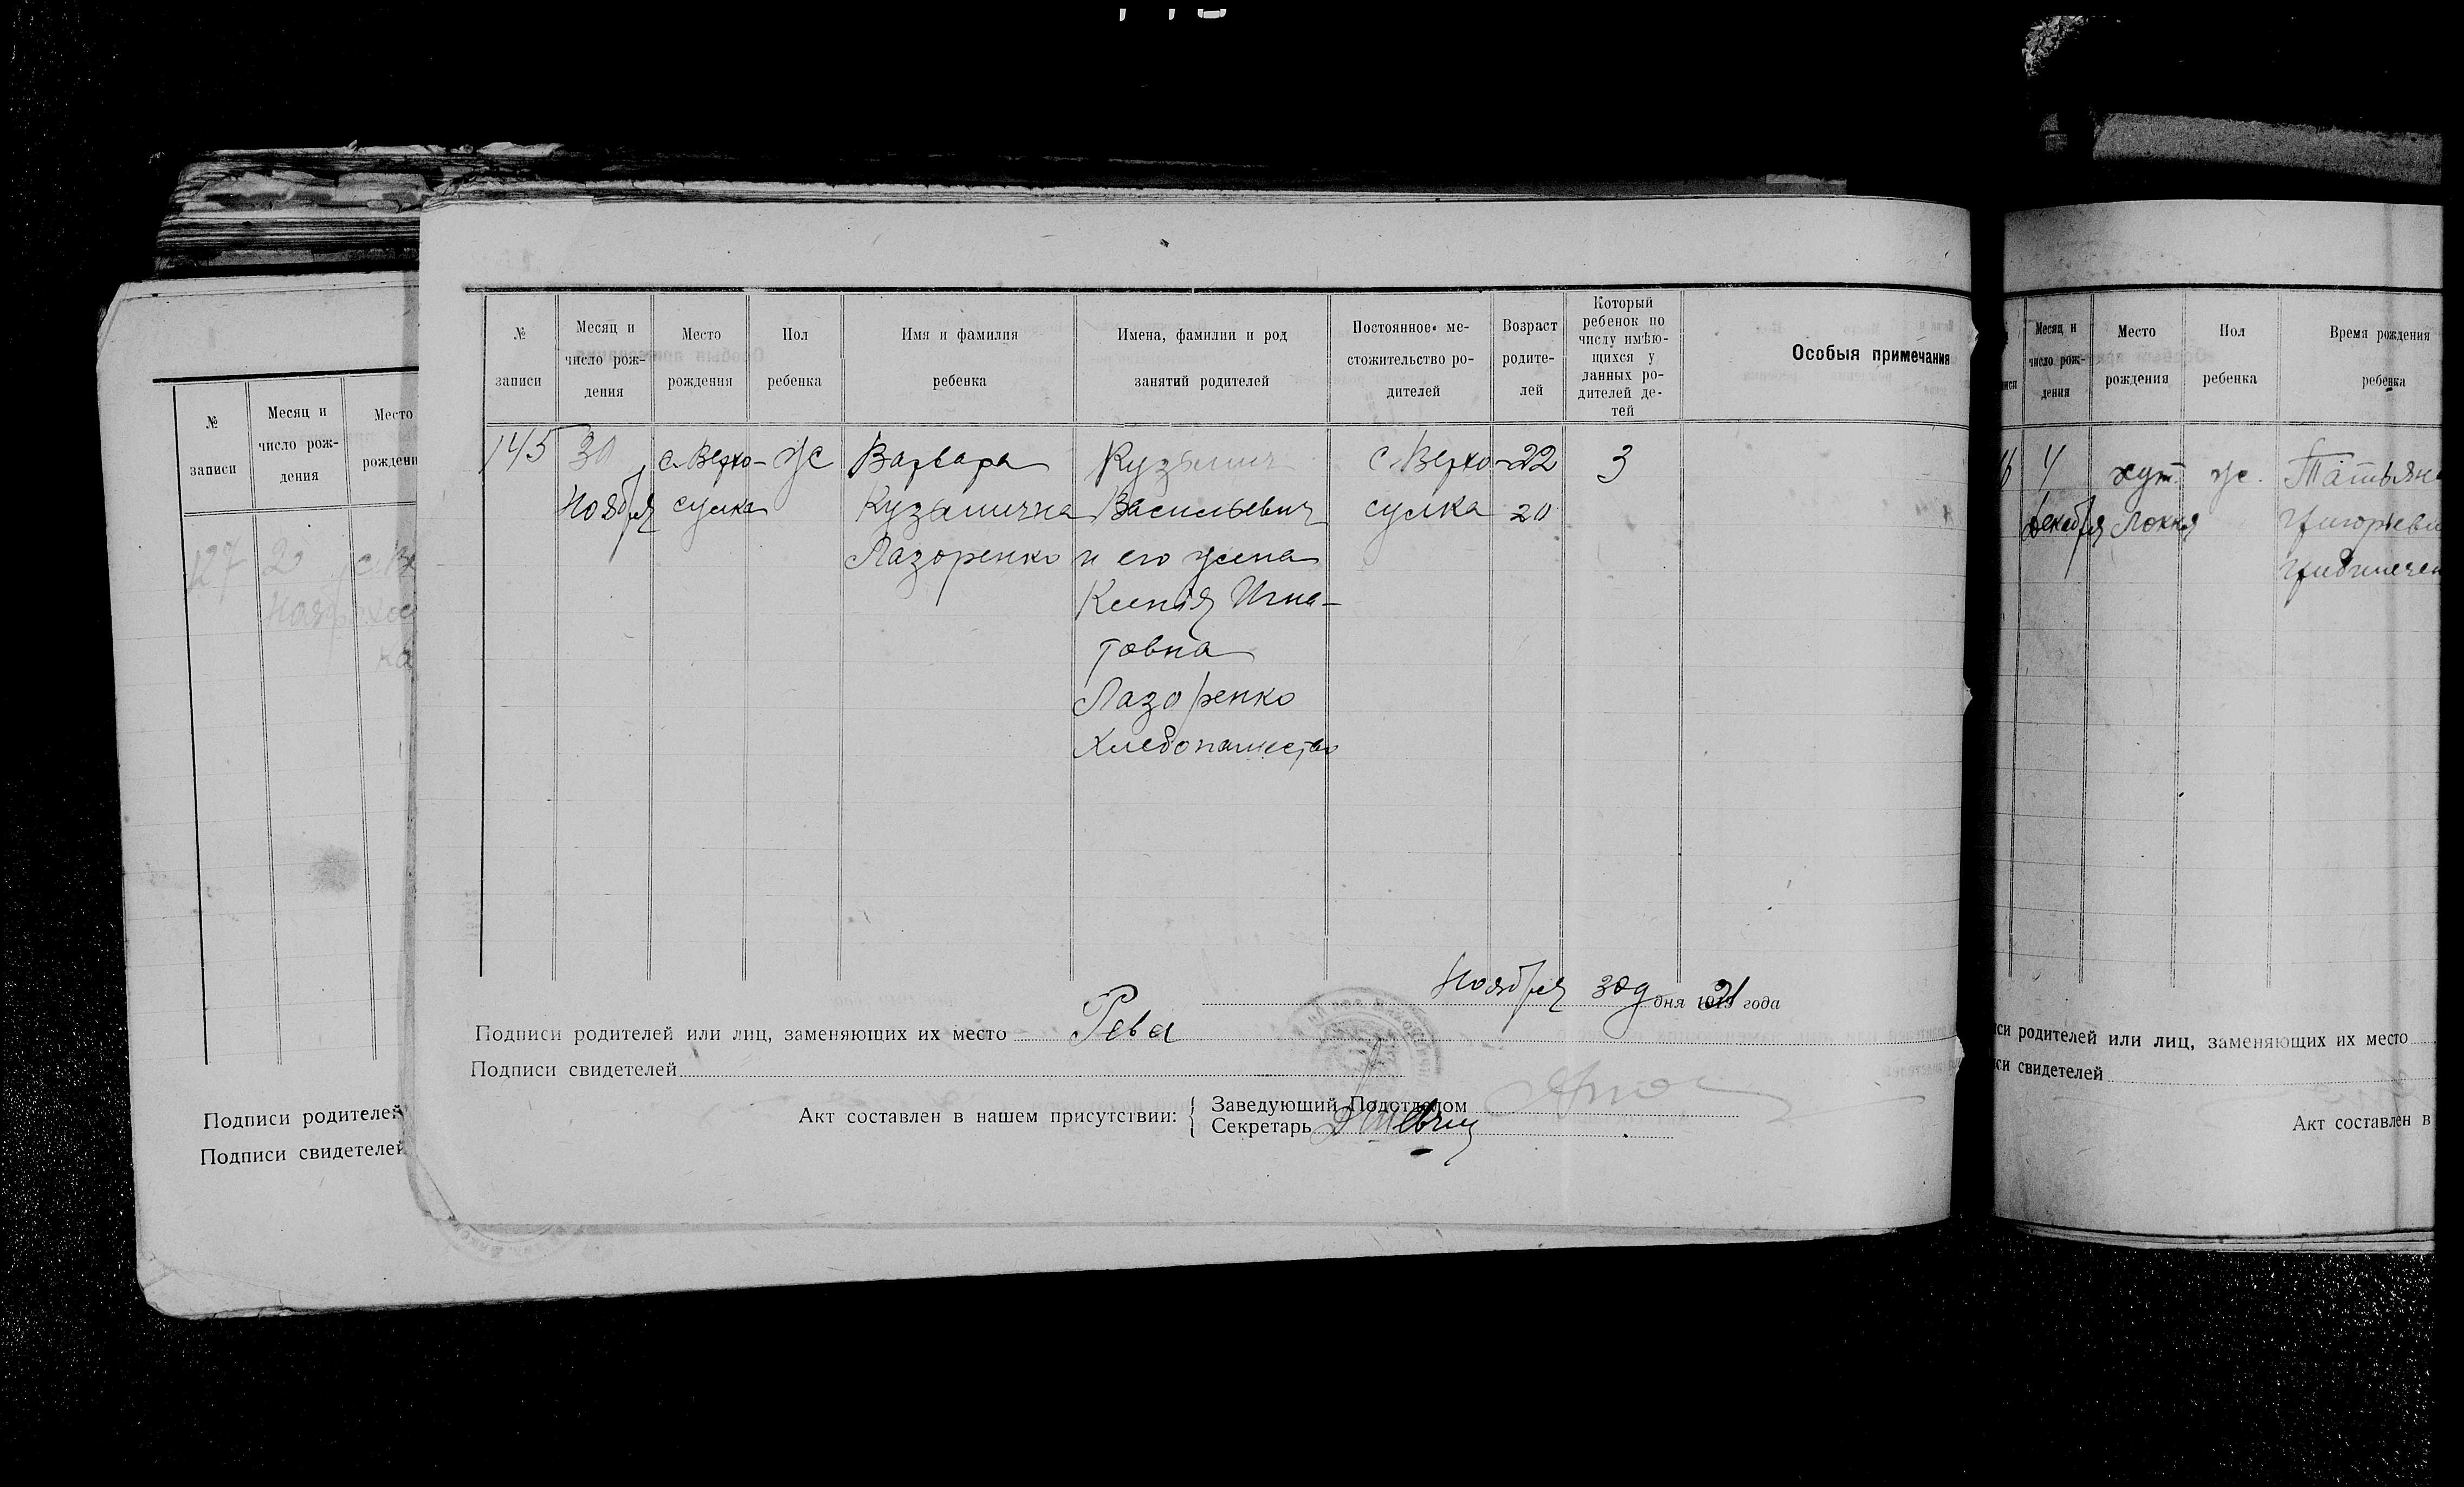 № записи
Месяц и число рож-
дения
Место
рождени
127
2
с. Ве
Подписи родителей
Подписи свидетелей
№ записи
Месяц и число рож-
дения
Место рождения
Пол ребенка
Имя и фамилия ребенка
Имена, фамилии и род занятий родителей
Постоянное ме-
стожительство ро-
дителей
Возраст родите-
лей
Который ребенок по числу имѣю-
щихся у данных ро-
дителей де-
тей
Особыя примечания
145
30
Ноября
с. Верхо-
сулка
ж
Варвара
Кузьмична
Лазоренко
Кузьмич
Васильевич
и его жена
Ксения Игна-
товна
Лазоренко
Хлебопашество
с. Верхо-
сулка
22
20
3
Ноября 30 дня 1921 года
Подписи родителей или лиц, заменяющих их место Рева
Подписи свидетелей
Акт составлен в нашем присутствии:
Заведующий Подотделом
Секретарь
Месяц и
число рож-
дения
Место
рождения
Пол
ребенка
Время рождения
ребенка
4
Декабря
хут.
Локня
ж.
Татьяна
родителей или лиц, заменяющих их место
свидетелей
Акт составлен в